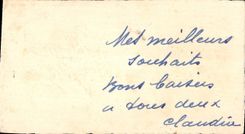 Mes meilleurs
souhaits
Bons baisers
a tous deux
Claudine